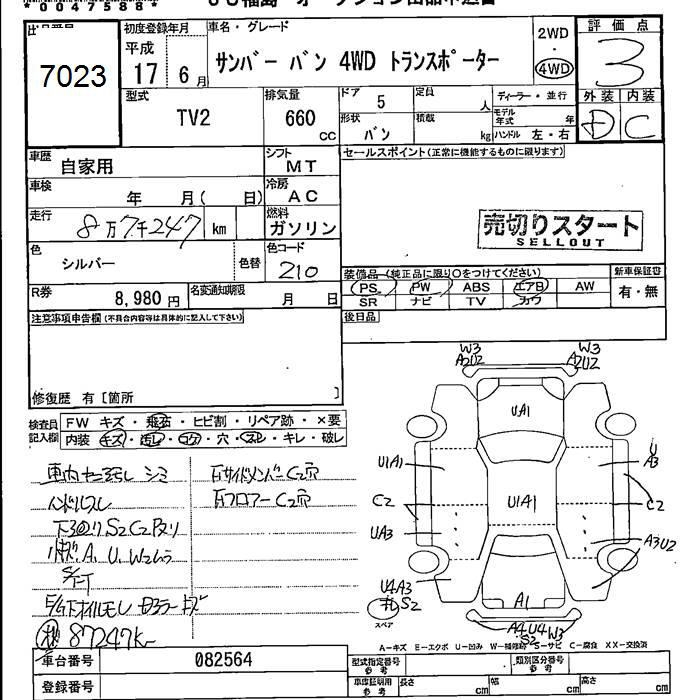 *0047588*
JU福島 オークション出品申込書
出品番号
7023
初度登録年月
平成 17 6月
車名・グレード
サンバー バン 4WD トランスポーター
2WD
・
4WD
評価点
3
型式
TV2
排気量
660 cc
ドア
5
定員
人
ディーラー・並行
モデル年式 年
形状
バン
積載
kg
ハンドル 左・右
外装 内装
D C
車歴
自家用
シフト
MT
セールスポイント(正常に機能するものに限ります)
車検
年 月( 日)
冷房
AC
走行
8万7千247 km
燃料
ガソリン
売切りスタート
SELLOUT
色
シルバー
色替
色コード
210
装備品(純正品に限り○をつけてください)
新車保証書
PS PW ABS エアB AW
有・無
SR ナビ TV カワ
R券
8,980円
名変通知期限
月 日
後日品
注意事項申告欄(不具合内容等は具体的に記入して下さい)
修復歴 有[箇所 ]
検査員記入欄
FW キズ・飛石・ヒビ割・リペア跡・×要
内装 キズ・汚し・コゲ・穴・スレ・キレ・破レ
シミ
ハンドルスレ
下回り S2C2
小キズ A. U. W2ムラ
87247K
右サイドメンバーC2穴
右フロアーC2穴
W3
A2U2
W3
A2U2
UA1
U1A1
U
A3
C2
U1A1
C2
UA3
A3U2
U4A3
S2
スペア
A1
A4U4W3
S2
A-キズ E-エクボ U-凹み W-補修跡 S-サビ C-腐食 XX-交換済
車台番号
082564
登録番号
型式指定番号 参考
類別区分番号 参考
車庫証明用 参考
長さ cm
幅 cm
高さ cm